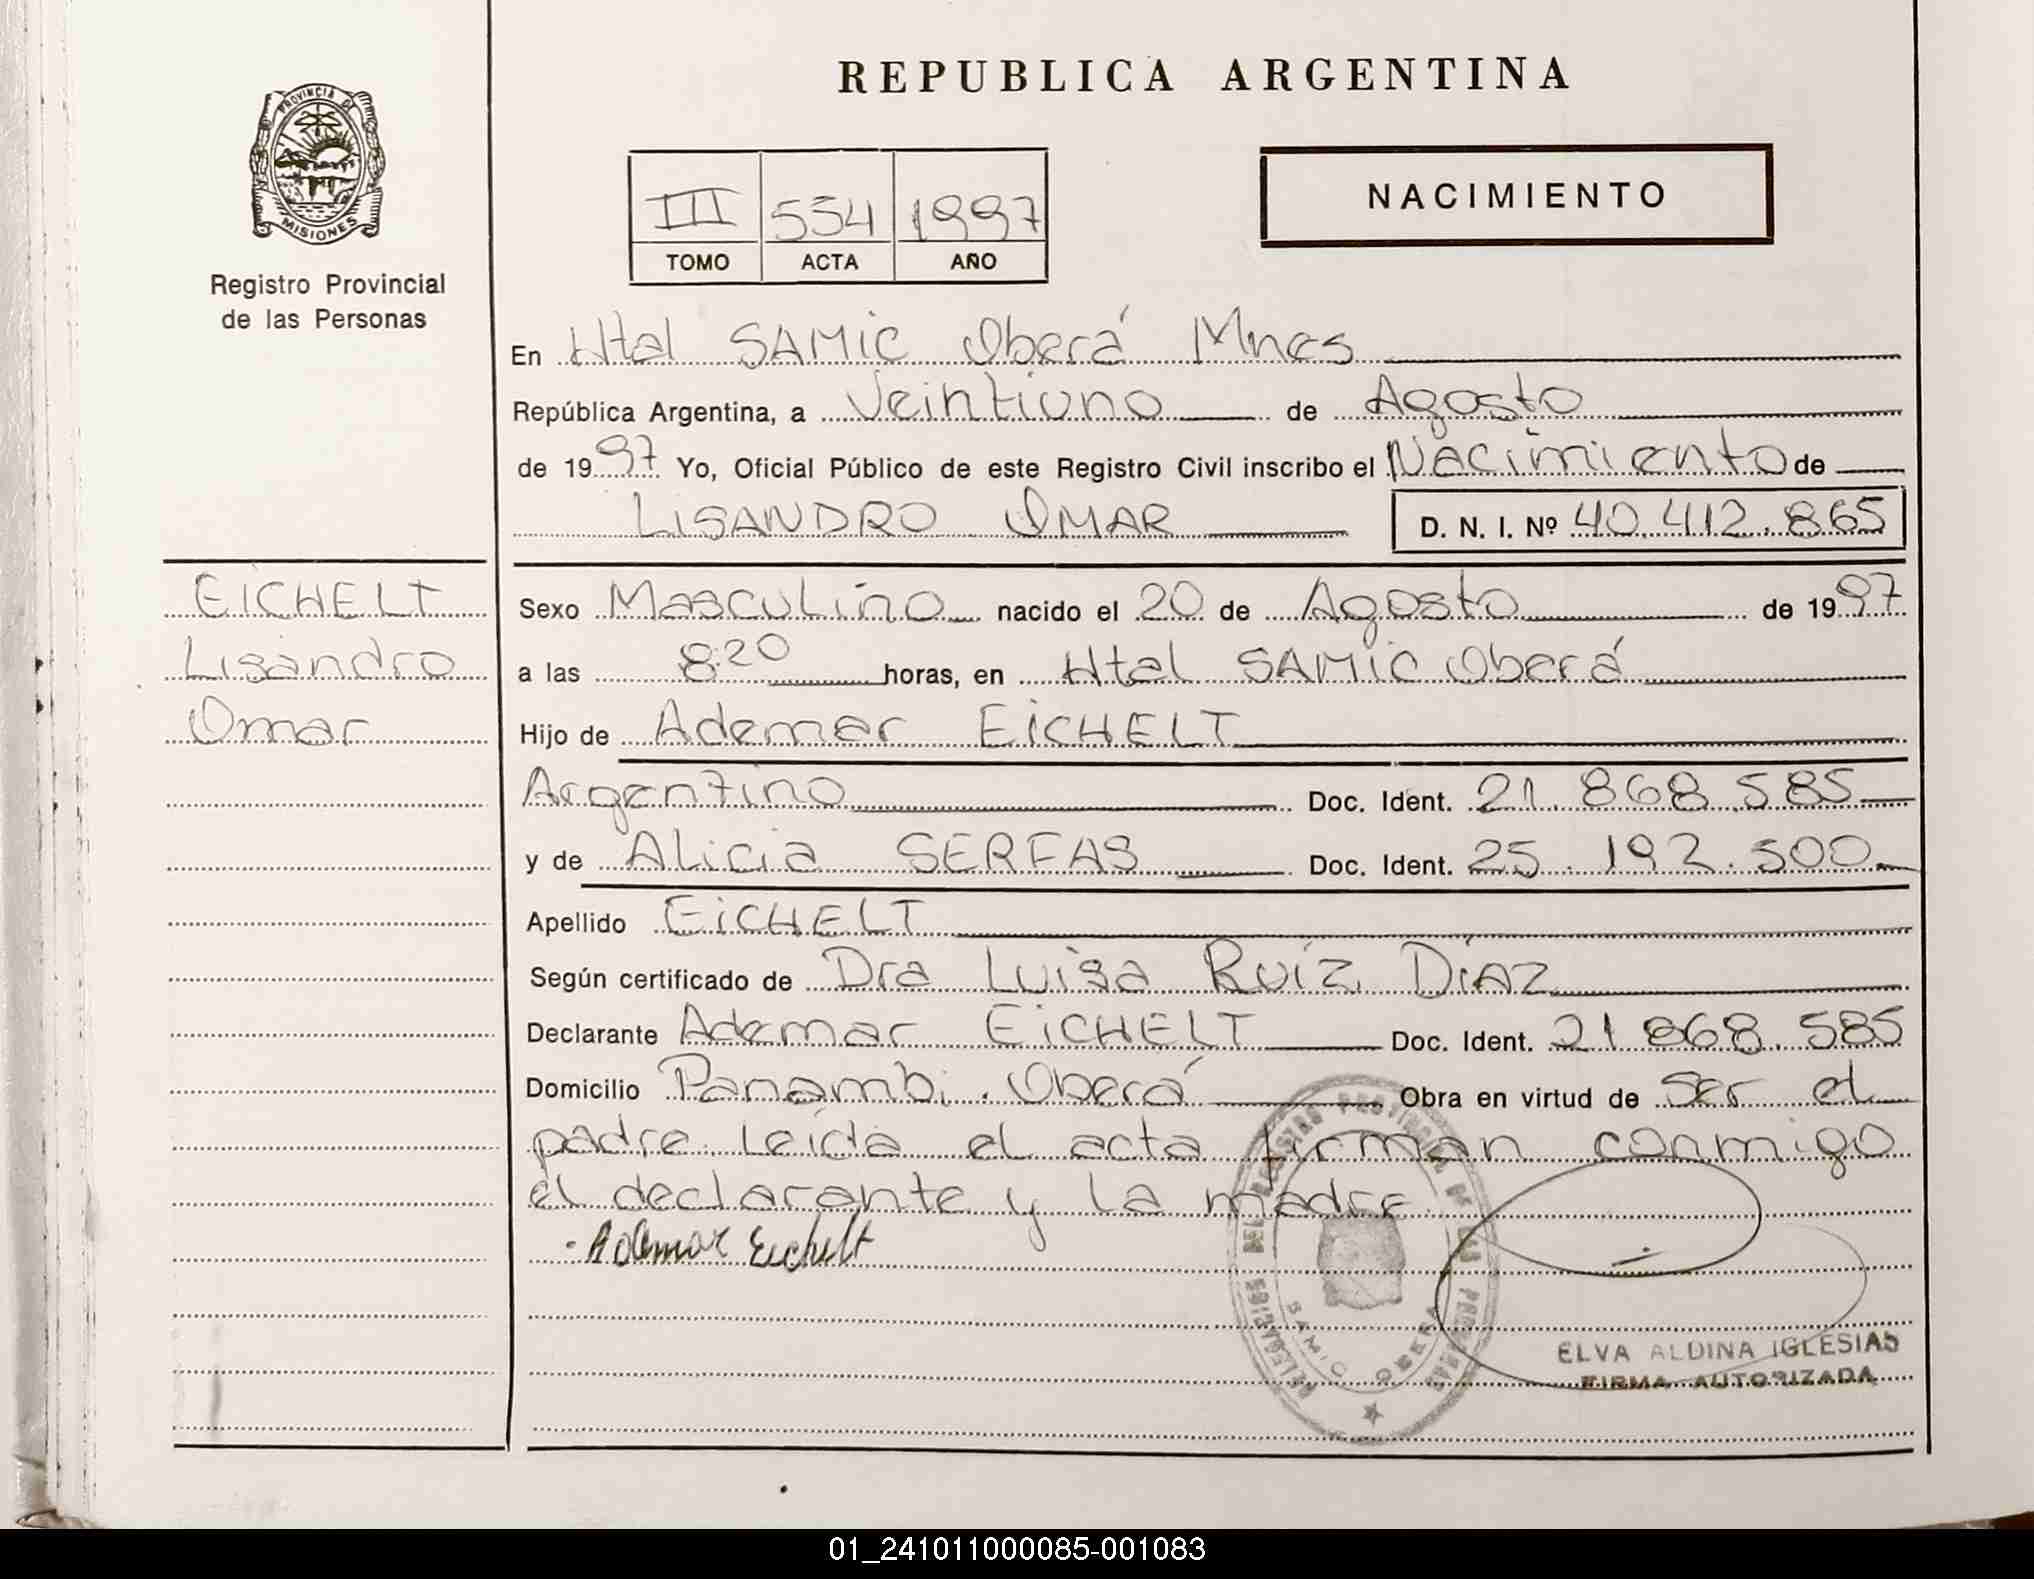 REPUBLICA ARGENTINA
PROVINCIA DE
MISIONES
Registro Provincial
de las Personas
NACIMIENTO
III 554 1997
TOMO ACTA AÑO
En Htal SAMIC Oberá Mnes
República Argentina, a Veintiuno de Agosto
de 1997 Yo, Oficial Público de este Registro Civil inscribo el Nacimiento de
LISANDRO OMAR D. N. I. Nº 40.412.865
EICHELT
Lisandro
Omar
Sexo Masculino nacido el 20 de Agosto de 1997
a las 8:20 horas, en Htal SAMIC Oberá
Hijo de Ademar EICHELT
Argentino Doc. Ident. 21.868.585
y de Alicia SERFAS Doc. Ident. 25.192.500
Apellido EICHELT
Según certificado de Dra Luisa Ruíz DíAZ
Declarante Ademar EICHELT Doc. Ident. 21 868.585
Domicilio Panambi. Oberá Obra en virtud de Ser el
padre. Leída el acta firman conmigo
el declarante y la madre.
Ademar Eichelt
DELEGACIONES DEL REGISTRO PROVINCIAL DE LAS PERSONAS
SAMIC OBERA
ELVA ALDINA IGLESIAS
FIRMA AUTORIZADA
01_241011000085-001083